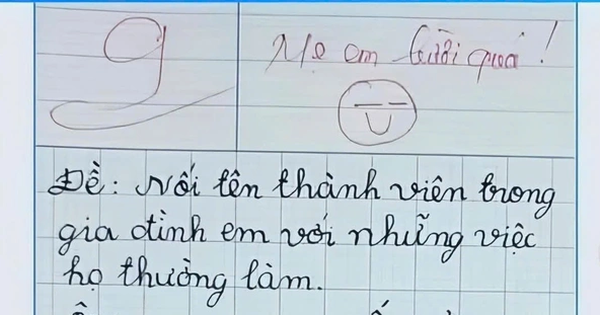 9
Mẹ em lười quá!
Đề: Nối tên thành viên trong
gia đình em với những việc
họ thường làm.